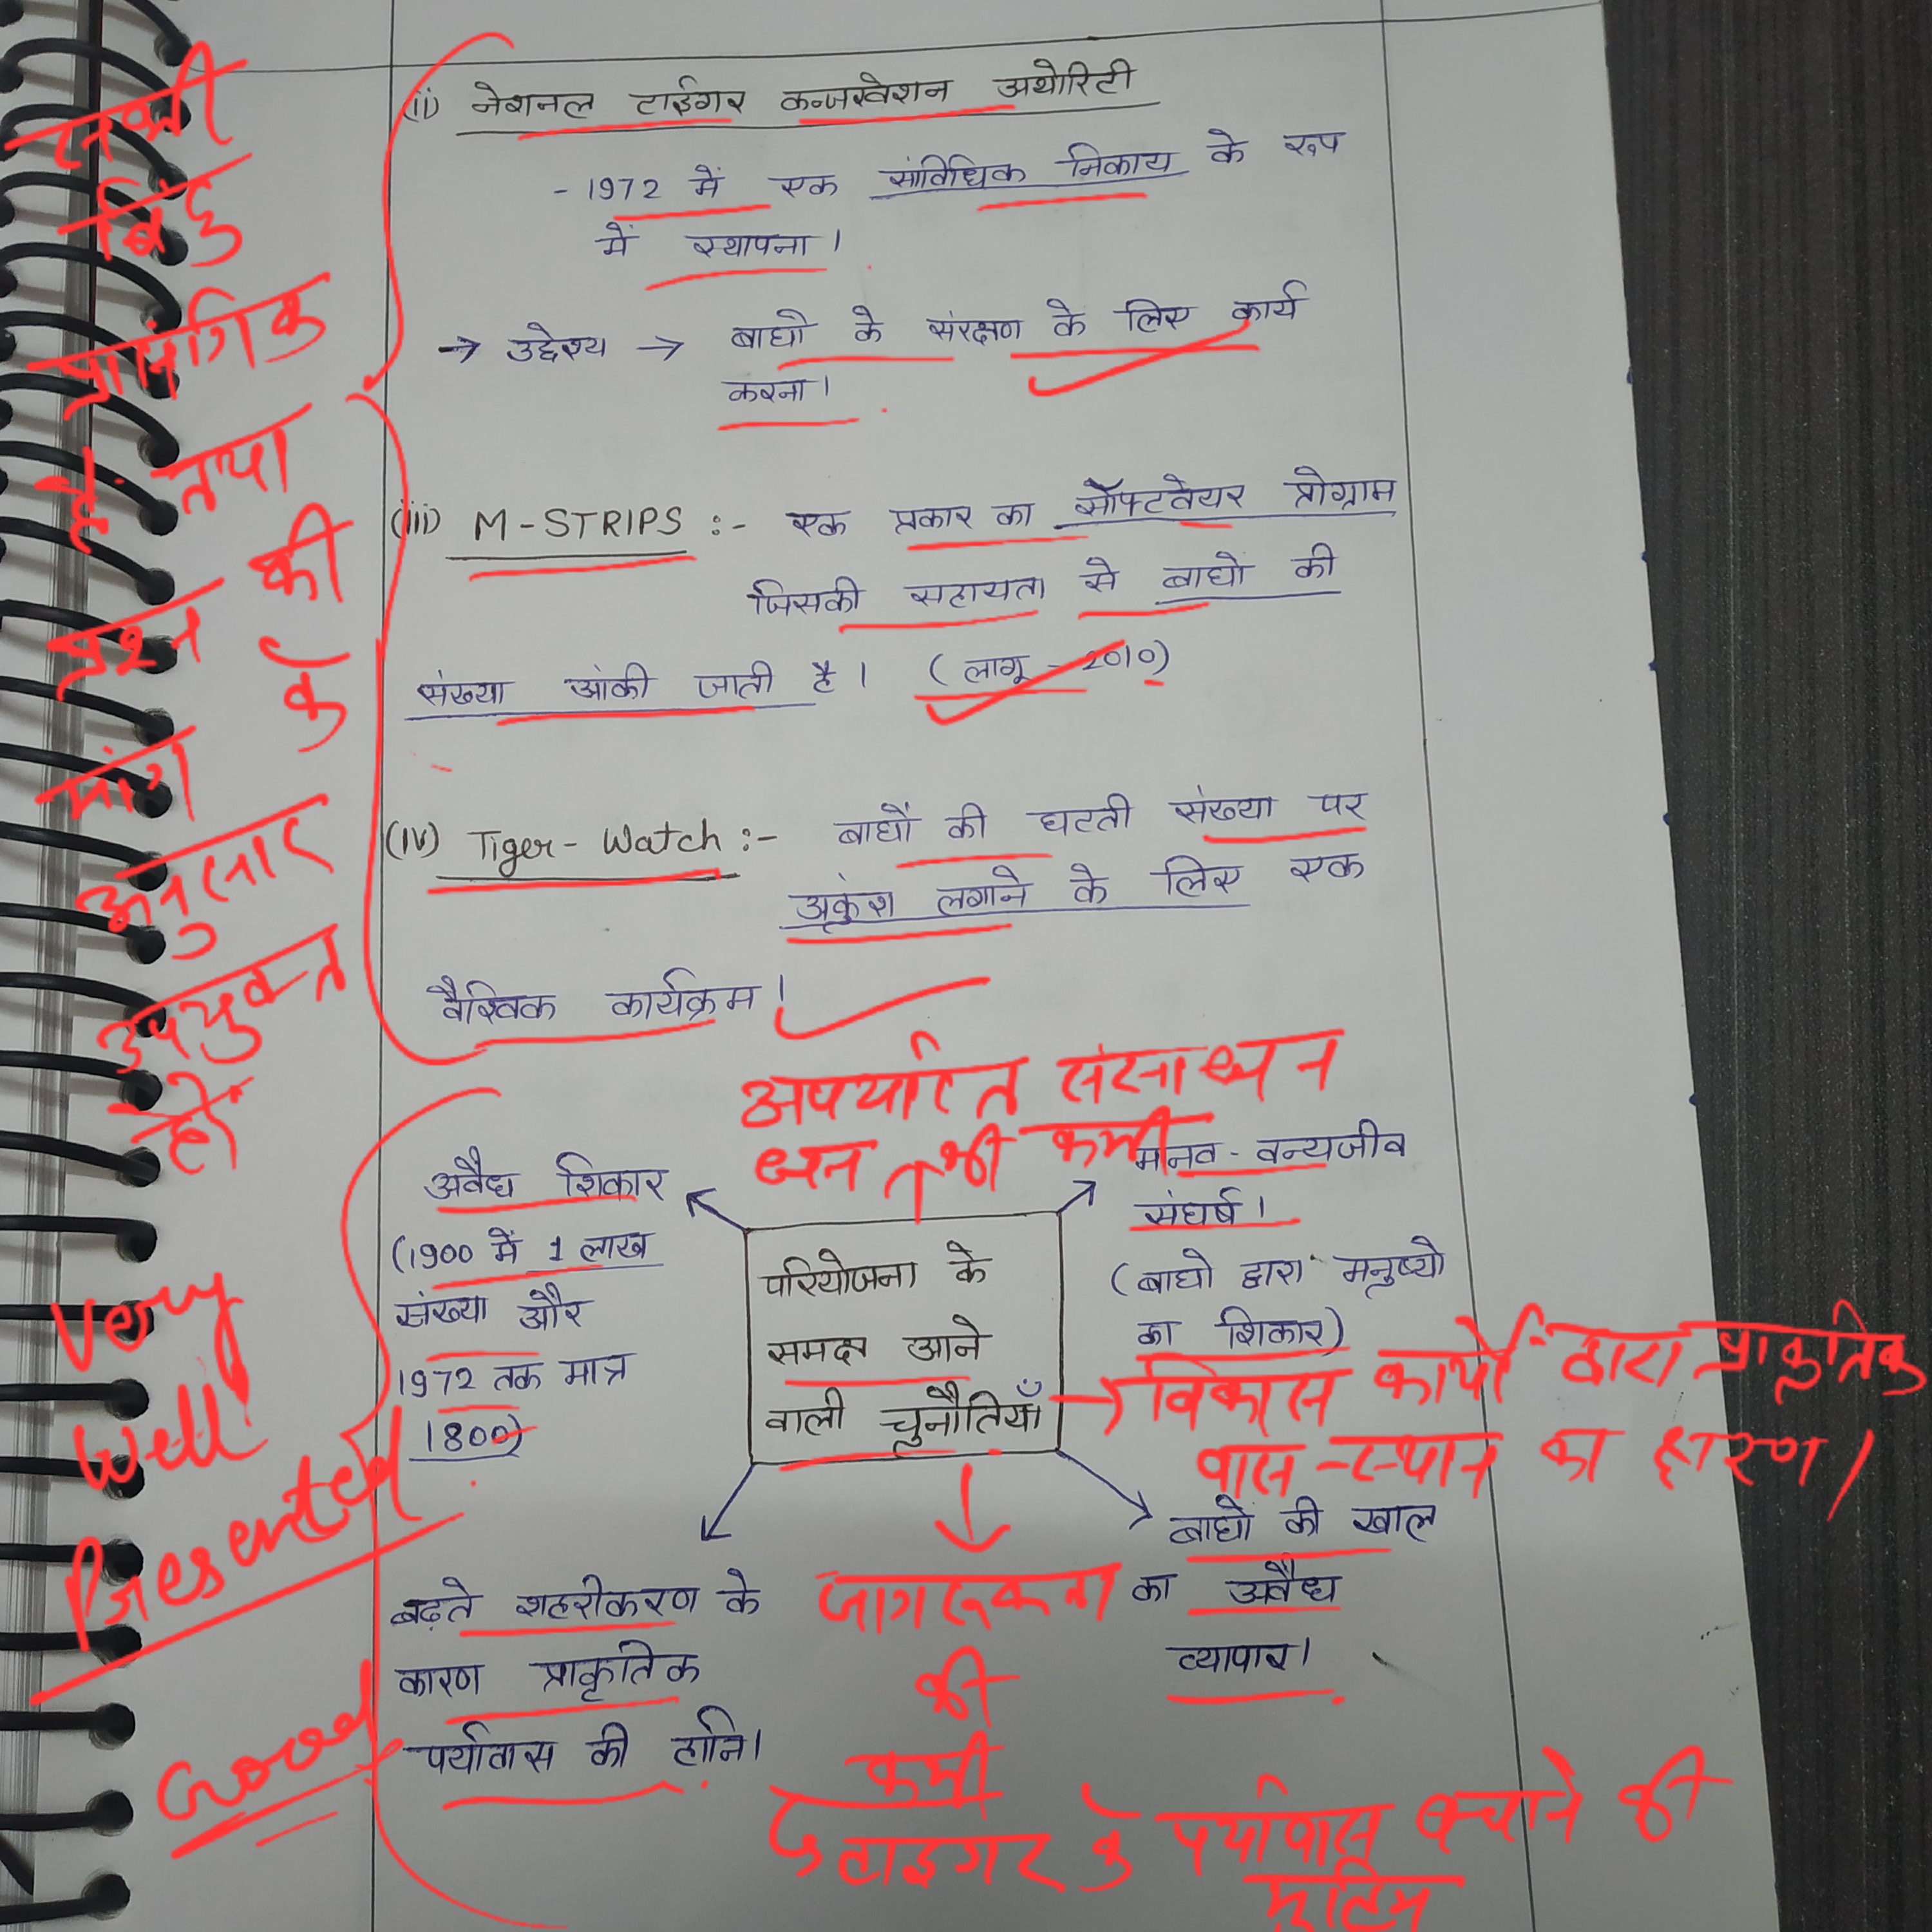 (ii) नेशनल टाईगर कन्जरवेशन अथोरिटी
- 1972 में एक सांविधिक निकाय के रूप
में स्थापना।
→ उद्देश्य → बाघों के संरक्षण के लिए कार्य
करना।
(iii) M-STRIPS :- एक प्रकार का सॉफ्टवेयर प्रोग्राम
जिसकी सहायता से बाघों की
संख्या आंकी जाती है। (लागू - 2010)
(iv) Tiger-Watch :- बाघों की घटती संख्या पर
अकुंश लगाने के लिए एक
वैश्विक कार्यक्रम।
सभी
बिंदु
प्रासंगिक
हैं तथा
प्रश्न की
मांग के
अनुसार
उपयुक्त
हैं
अपर्याप्त संसाधन
धन की कमी
अवैध शिकार
(1900 में 1 लाख
संख्या और
1972 तक मात्र
1800)
मानव-वन्यजीव
संघर्ष।
(बाघो द्वारा मनुष्यो
का शिकार)
परियोजना के
समक्ष आने
वाली चुनौतियाँ
→ विकास कार्यों द्वारा प्राकृतिक
वास-स्थान का क्षरण।
बढ़ते शहरीकरण के
कारण प्राकृतिक
पर्यावास की हानि।
जागरूकता
की
कमी
बाघों की खाल
का अवैध
व्यापार।
Very
Well
Presented
Good
टाइगर के पर्यावास बचाने की
मुहिम